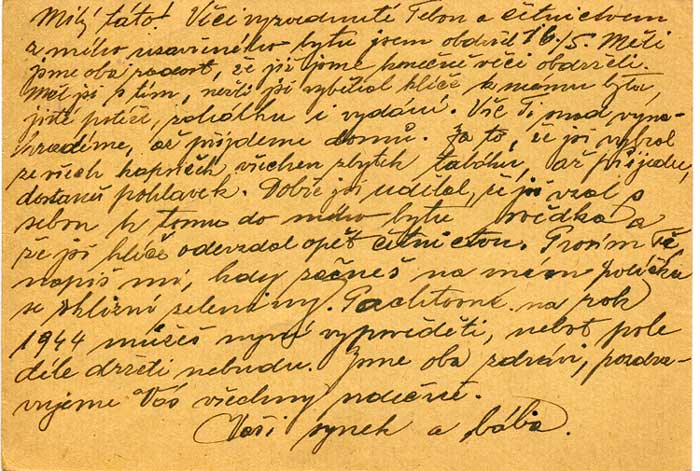 Milý táto! Věci vyzvednuté Tebou a četnictvem
z mého uzavřeného bytu jsem obdržel 16/5. Měli
jsme oba radost, že již jsme konečně věci obdrželi.
Měl jsi s tím, nežli jsi vybíral klíče k mému bytu,
jistě potíží, zaháňku i vydání. Vše Ti snad vyna-
hradíme, až přijdeme domů. Za to, že jsi vybral
ze všech kapsiček všechen zbytek tabáku, až přijedu,
dostaneš pohlavek. Dobře jsi udělal, že jsi vzal s
sebou k tomu do mého bytu svědka a
že jsi klíče odevzdal opět četnictvu. Prosím Tě
napiš mi, kdy začneš na mém políčku
se sklizní zeleniny. Pachtovné na rok
1944 můžeš nyní vypověděti, neboť pole
déle držeti nebudu. Jsme oba zdrávi, pozdra-
vujeme Vás všechny srdečně.
Vaši synek a bába.